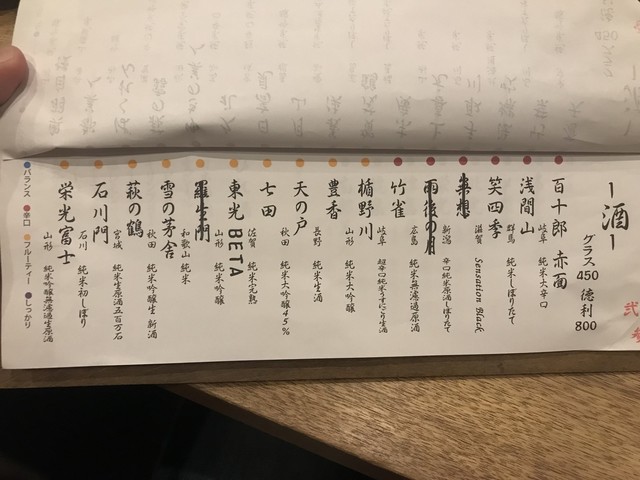 酒
グラス450 徳利800
百十郎 赤面
岐阜 純米大辛口
浅間山
群馬 純米しぼりたて
笑四季
滋賀 Sensation Black
夢想
新潟 辛口純米原酒しぼりたて
雨後の月
広島 純米無濾過原酒
竹雀
岐阜 超辛口純米うすにごり生酒
楯野川
山形 純米大吟醸
豊香
長野 純米生酒
天の戸
秋田 純米大吟醸45%
七田
佐賀 純米完熟
東光 BETA
山形 純米吟醸
羅生門
和歌山 純米
雪の茅舎
秋田 純米吟醸生 新酒
萩の鶴
宮城 純米生原酒五百万石
石川門
石川 純米初しぼり
栄光冨士
山形 純米吟醸無濾過生原酒
バランス 辛口 フルーティー しっかり